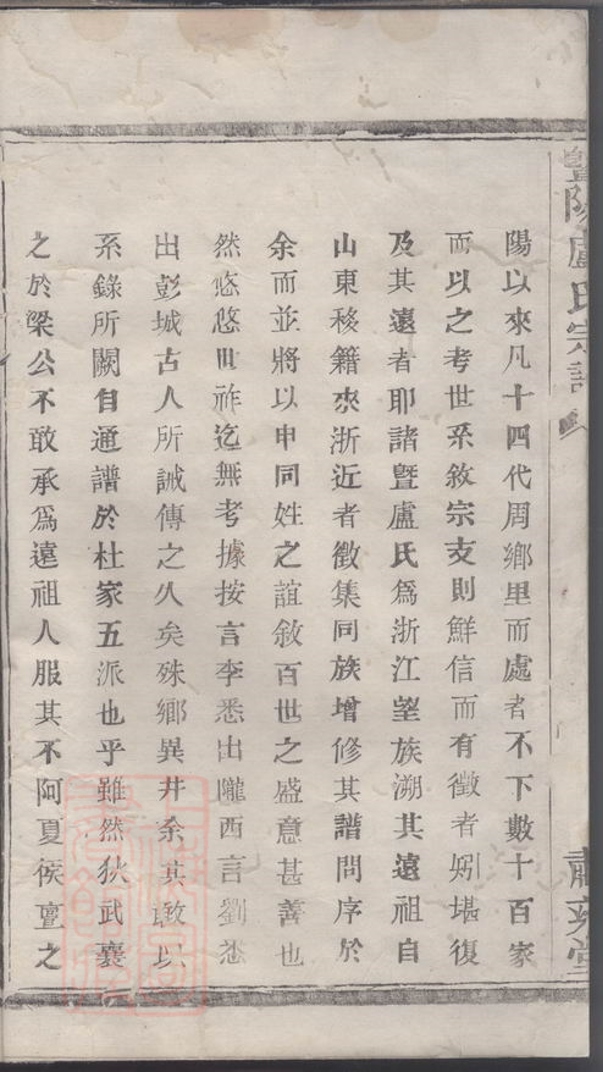 暨陽盧氏宗譜
肅雍堂
陽以來凡十四代周鄉里而處者不下數十百家
而以之考世系敘宗支則鮮信而有徵者矧堪復
及其遠者耶諸暨盧氏爲浙江望族溯其遠祖自
山東移籍來浙近者徵集同族增修其譜問序於
余而並將以申同姓之誼敘百世之盛意甚善也
然悠悠世祚迄無考據按言李悉出隴西言劉悉
出彭城古人所誡傳之久矣殊鄉異井余其敢以
系錄所闕自通譜於杜家五派也乎雖然狄武襄
之於梁公不敢承爲遠祖人服其不阿夏侯亶之